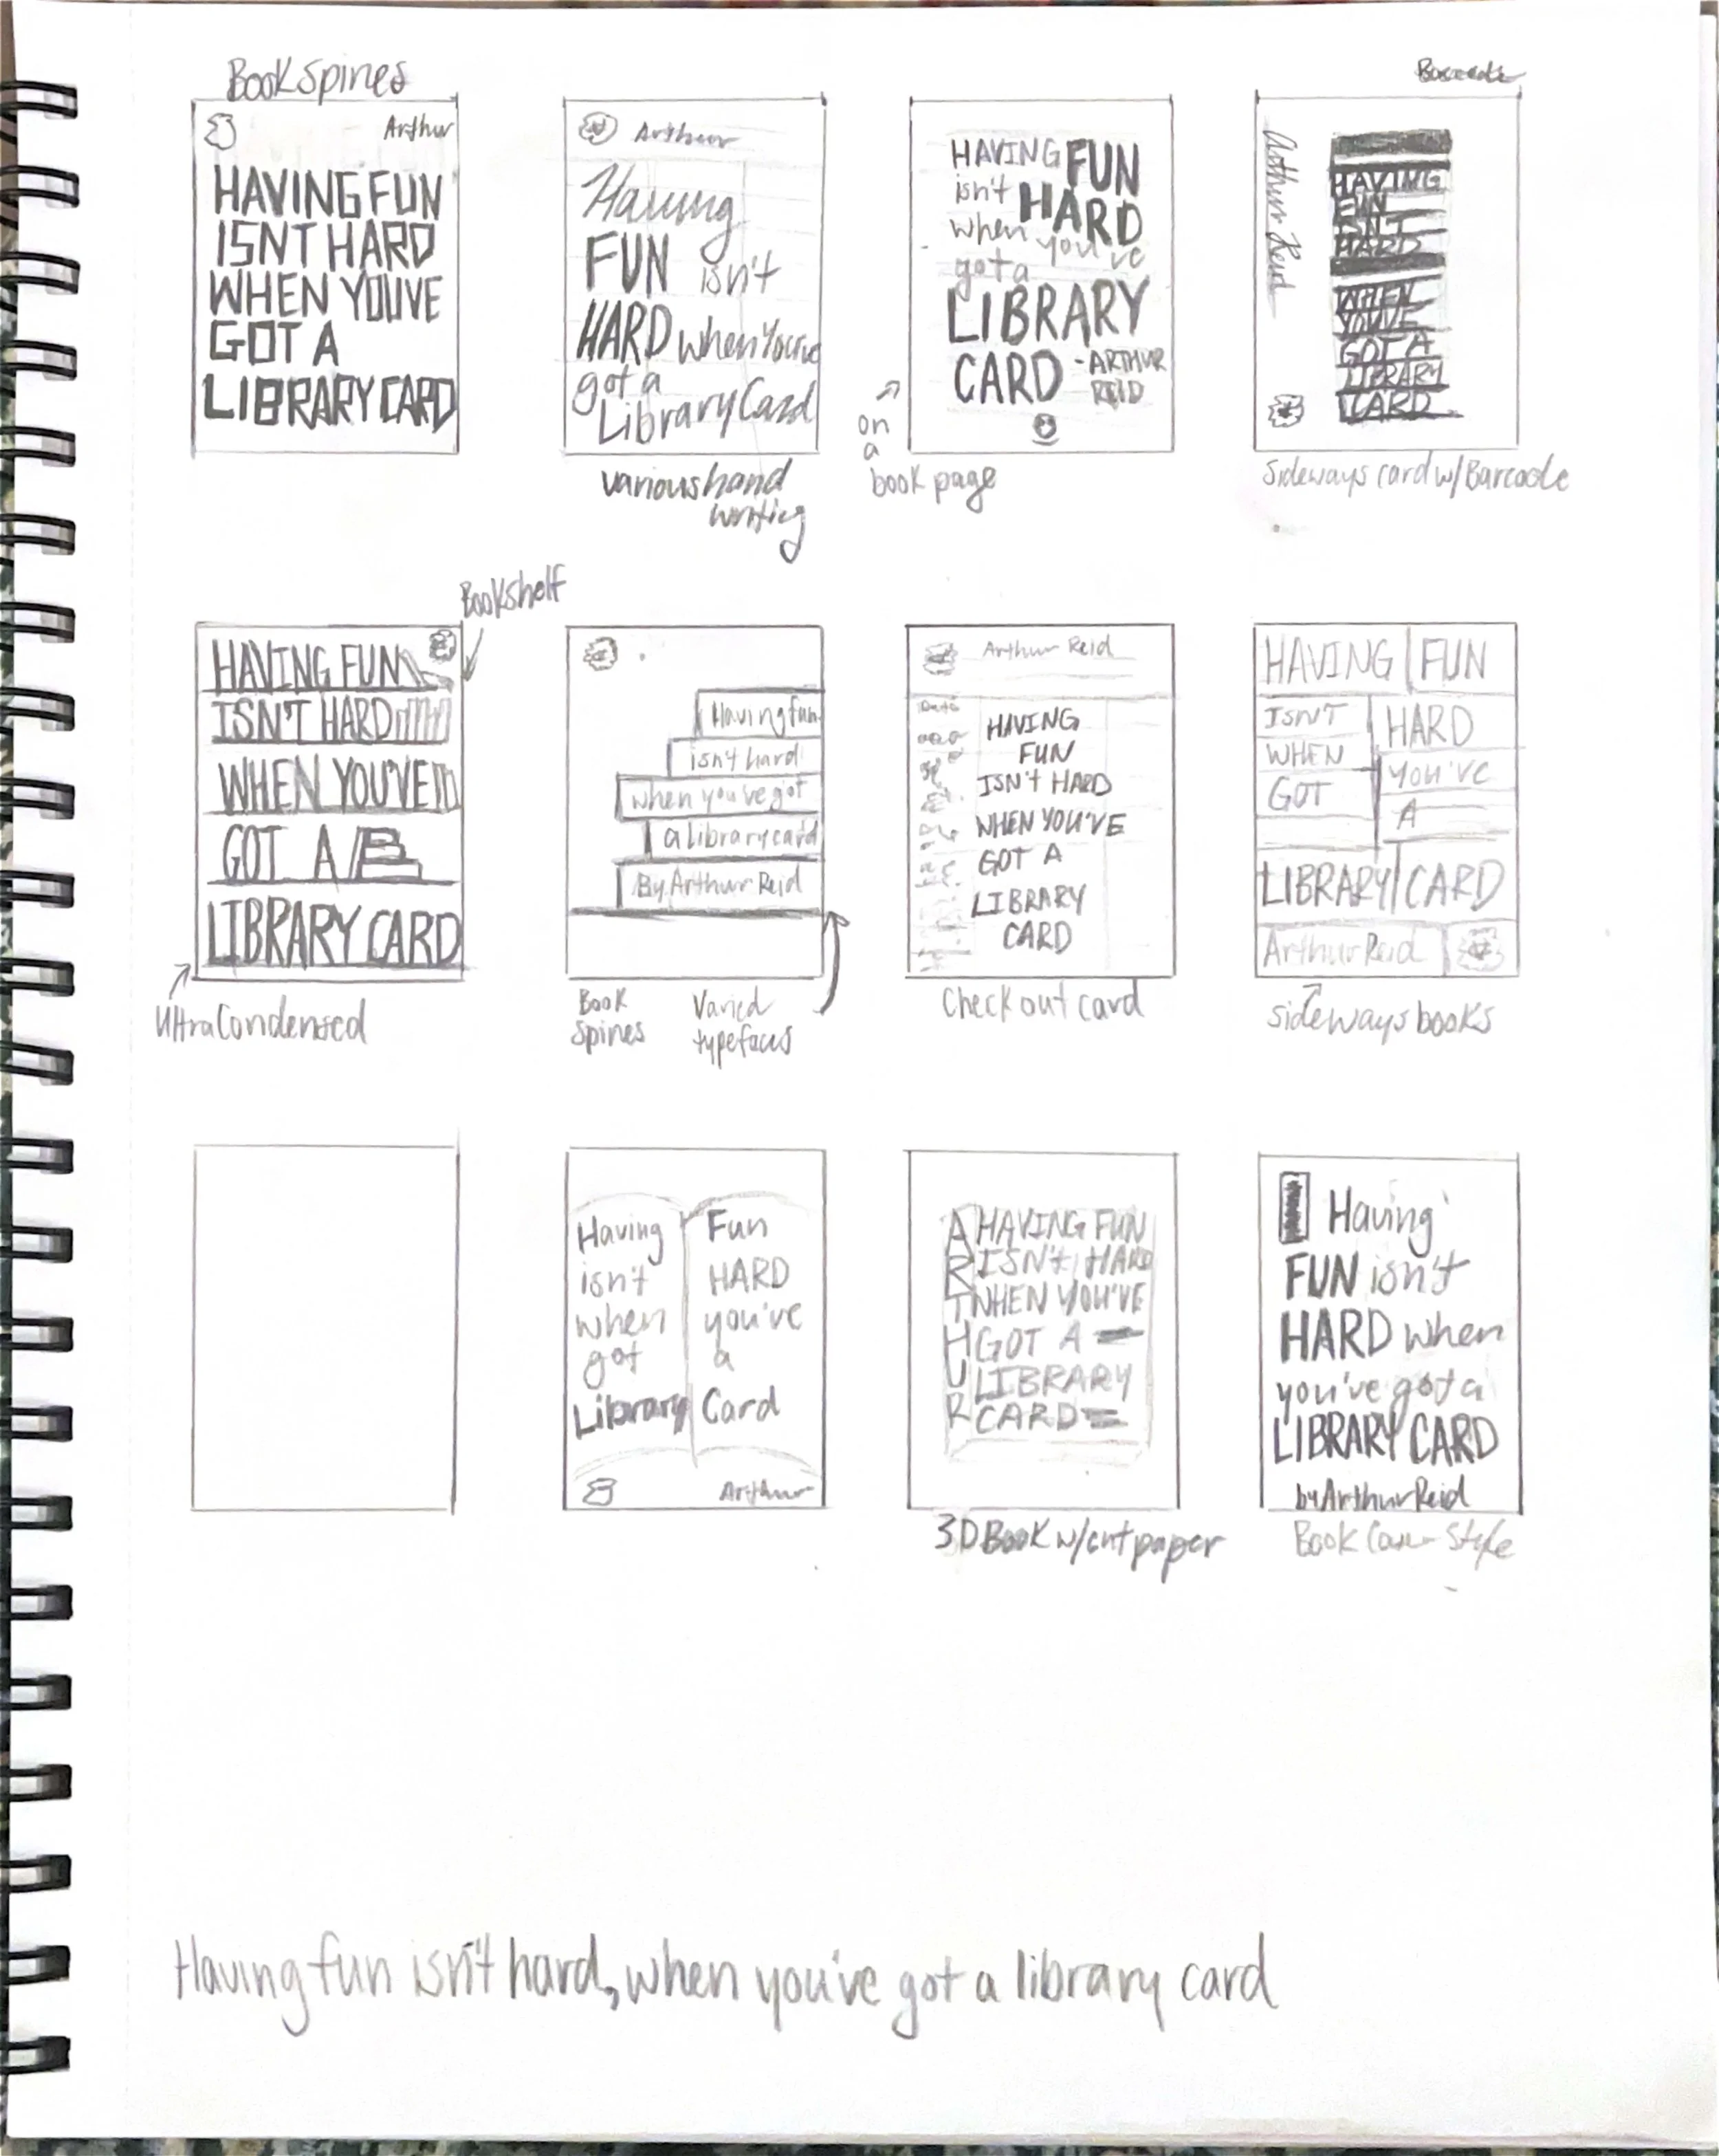 Book Spines
Arthur
HAVING FUN
ISNT HARD
WHEN YOUVE
GOT A
LIBRARY CARD
Arthur
Having
FUN isn't
HARD when You've
got a
Library Card
various hand
writing
HAVING FUN
isn't HARD
when you've
got a
LIBRARY
CARD -ARTHUR
REID
on
a
book page
Barcode
Arthur Reid
HAVING
FUN
ISN'T
HARD
WHEN
YOU'VE
GOT A
LIBRARY
CARD
Sideways card w/ Barcode
Bookshelf
HAVING FUN
ISN'T HARD
WHEN YOU'VE
GOT A
LIBRARY CARD
Ultra Condensed
Having fun
isn't hard
when you've got
a library card
By Arthur Reid
Book
Spines
Varied
typefaces
Arthur Reid
Date
HAVING
FUN
ISN'T HARD
WHEN YOU'VE
GOT A
LIBRARY
CARD
Check out card
HAVING FUN
ISN'T HARD
WHEN YOU'VE
GOT A
LIBRARY CARD
Arthur Reid
sideways books
Having Fun
isn't HARD
when you've
got a
Library Card
Arthur
ARTHUR
HAVING FUN
ISN'T HARD
WHEN YOU'VE
GOT A
LIBRARY
CARD
3D Book w/ cut paper
Having
FUN isn't
HARD when
you've got a
LIBRARY CARD
by Arthur Reid
Book Cover Style
Having fun isn't hard, when you've got a library card